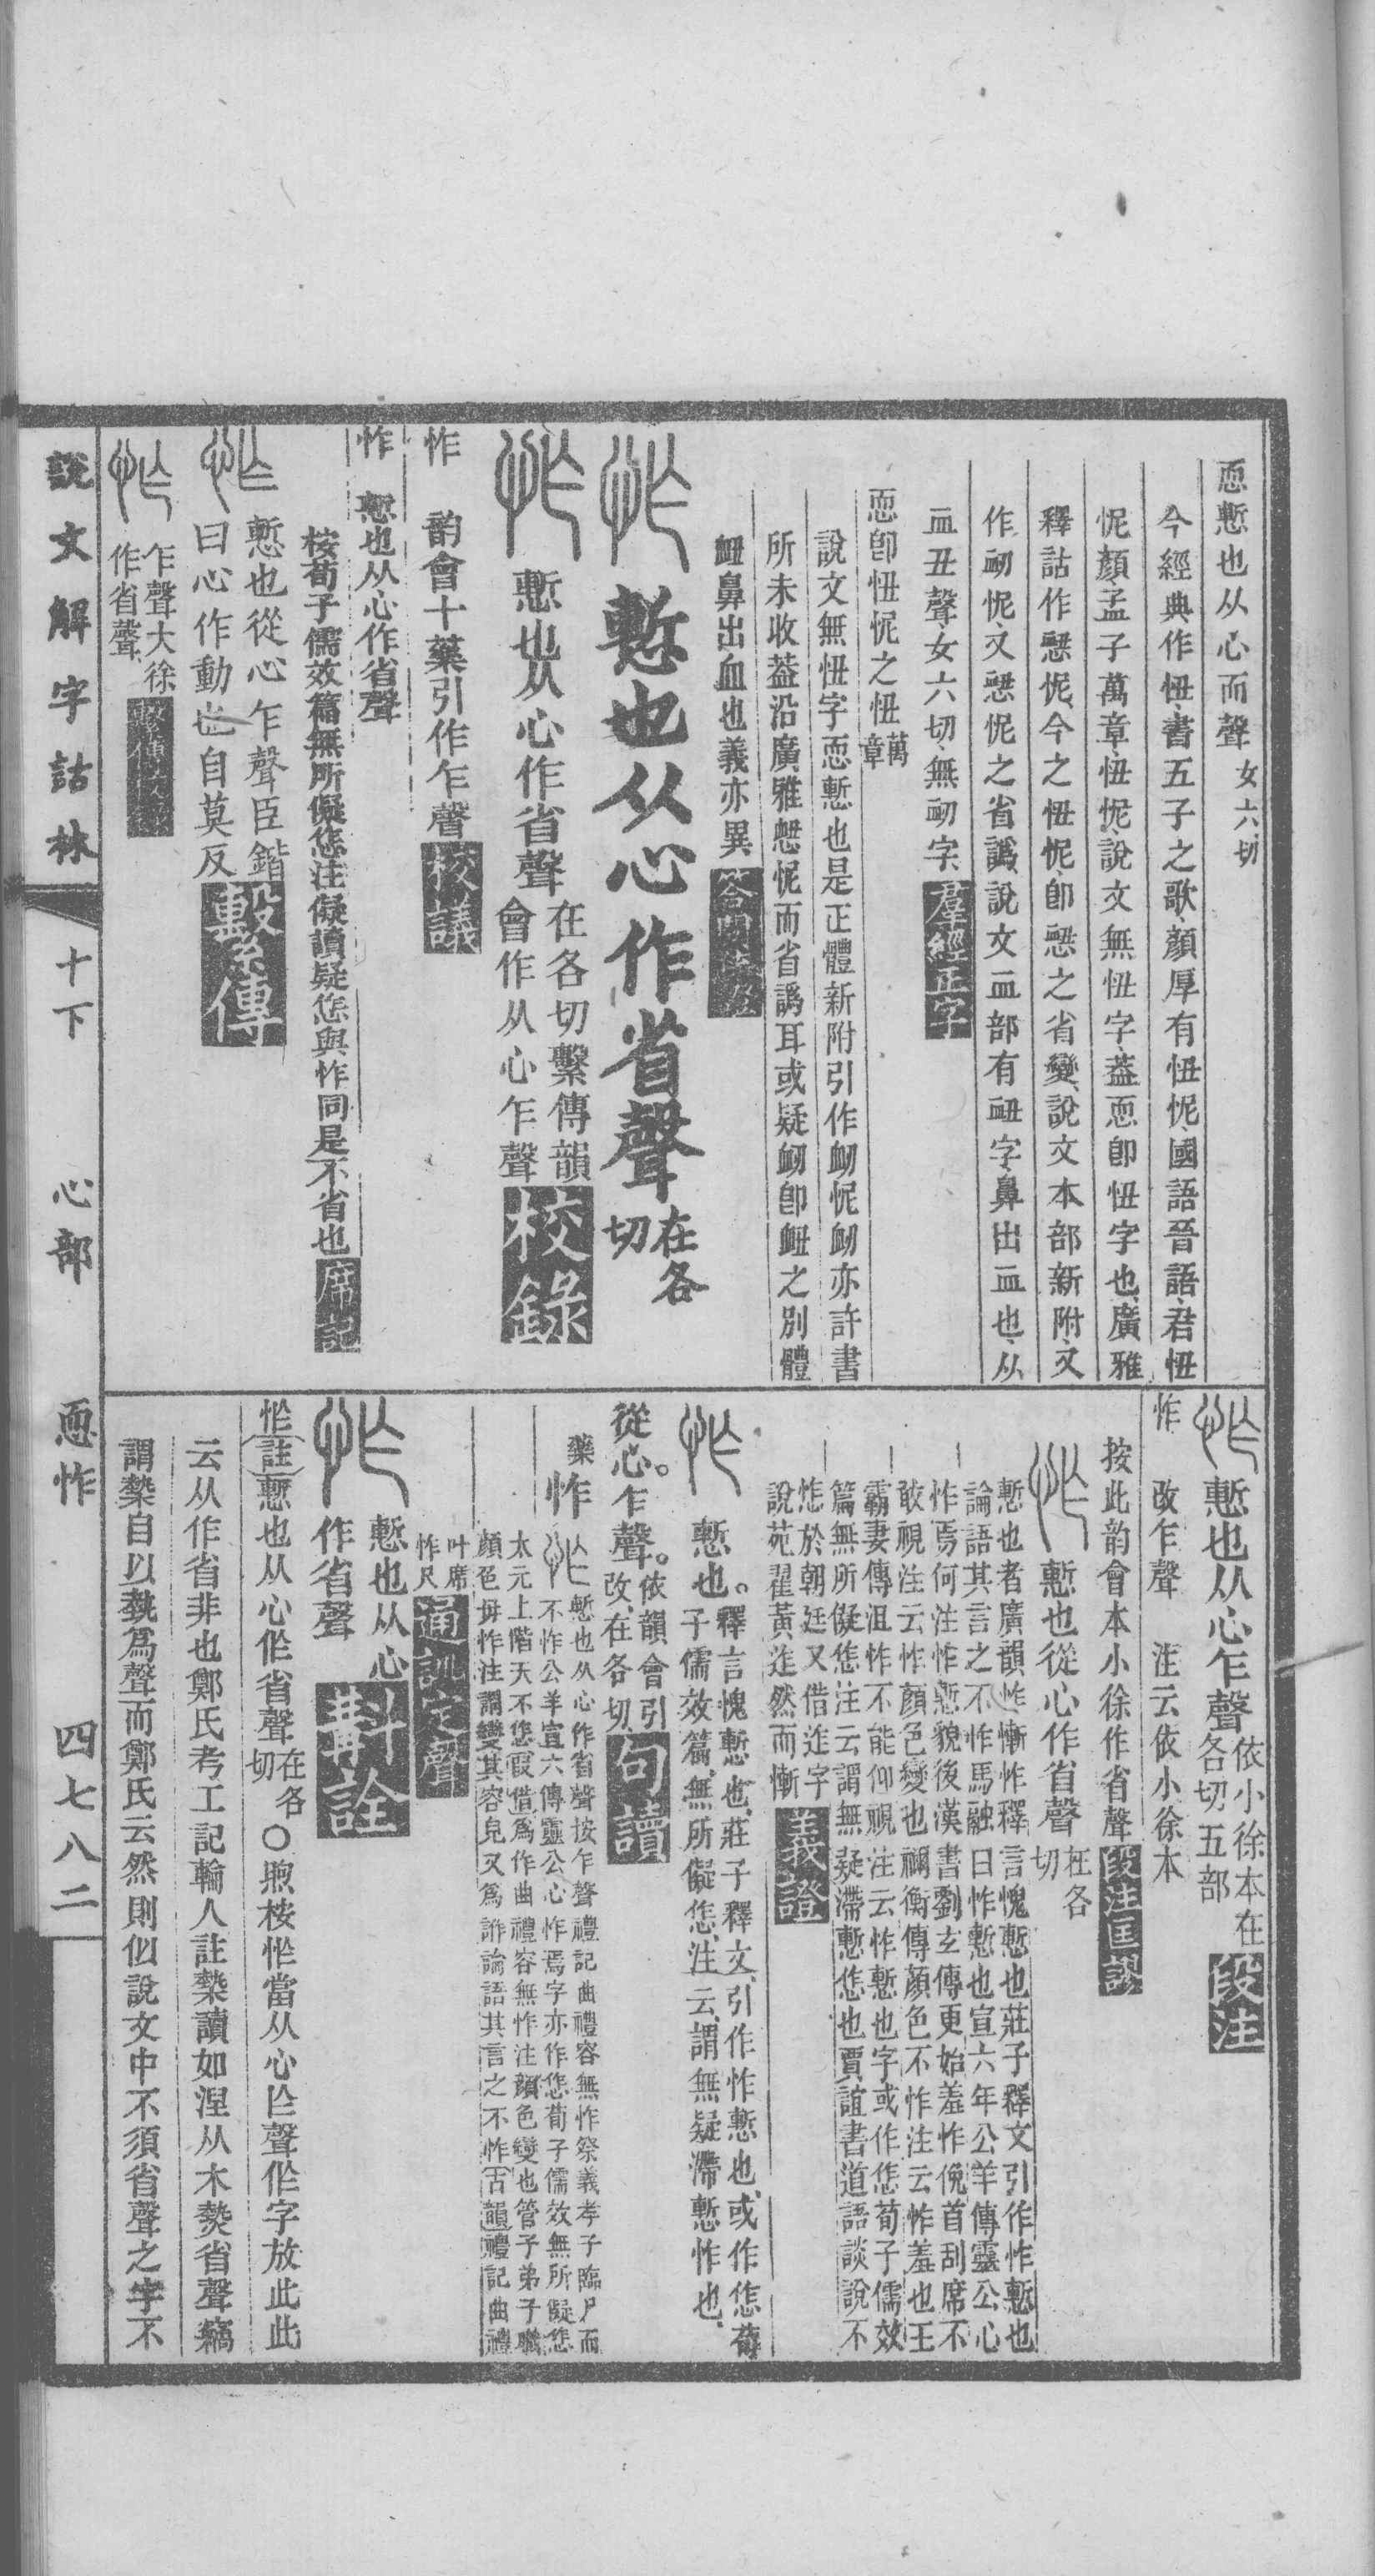 恧慙也从心而聲女六切
今經典作忸書五子之歌顏厚有忸怩國語晉語君忸
怩顏孟子萬章忸怩說文無忸字葢恧卽忸字也廣雅
釋詁作𢝊怩今之忸怩卽𢝊之省變說文本部新附又
作䘐怩又𢝊怩之省譌說文血部有衄字鼻出血也从
血丑聲女六切無䘐字羣經正字
恧卽忸怩之忸萬章
說文無忸字恧慙也是正體新附引作䘐怩䘐亦許書
所未收葢沿廣雅𢝊怩而省譌耳或疑䘐卽衄之別體
衄鼻出血也義亦異答問疏證
怍慙也从心作省聲在各切
怍慙也从心作省聲在各切繫傳韻會作从心乍聲校錄
怍 韵會十藥引作乍聲校議
怍 慙也从心作省聲
桉荀子儒效篇無所儗㤰注儗讀疑㤰與怍同是不省也席記
怍慙也從心乍聲臣鍇曰心作動也自莫反繫傳
怍乍聲大徐作省聲繫傳校錄
怍慙也从心乍聲依小徐本在各切五部段注
怍 改乍聲 注云依小徐本
按此韵會本小徐作省聲段注匡謬
怍慙也從心作省聲在各切
慙也者廣韻怍慚怍釋言愧慙也莊子釋文引作怍慙也
論語其言之不怍馬融曰怍慙也宣六年公羊傳靈公心
怍焉何注怍慙貌後漢書劉玄傳更始羞怍俛首刮席不
敢視注云怍顏色變也禰衡傳顏色不怍注云怍羞也王
霸妻傳沮怍不能仰視注云怍慙也字或作㤰荀子儒效
篇無所儗㤰注云謂無疑滯慙㤰也賈誼書道語談說不
怍於朝廷又借迮字
說苑翟黃迮然而慚義證
怍慙也。釋言愧慙也莊子釋文引作怍慙也或作㤰荀子儒效篇無所儗㤰注云謂無疑滯慙怍也
從心。乍聲。依韻會引改在各切句讀
藥怍慙也从心作省聲按乍聲禮記曲禮容無怍祭義孝子臨尸而
不怍公羊宣六傳靈公心怍焉字亦作㤰荀子儒效無所儗㤰
太元上階天不㤰叚借爲作曲禮容無怍注顏色變也管子弟子職
顏色毋怍注謂變其容皃又爲詐論語其言之不怍古韻禮記曲禮
叶席怍尺通訓定聲
怍慙也从心作省聲斠詮
怍註慙也从心作省聲在各切○煦桉怍當从心亾聲作字放此此
云从作省非也鄭氏考工記輪人註槷讀如涅从木熱省聲竊
謂槷自以埶爲聲而鄭氏云然則似說文中不須省聲之字不
說文解字詁林 十下 心部 恧怍 四七八二